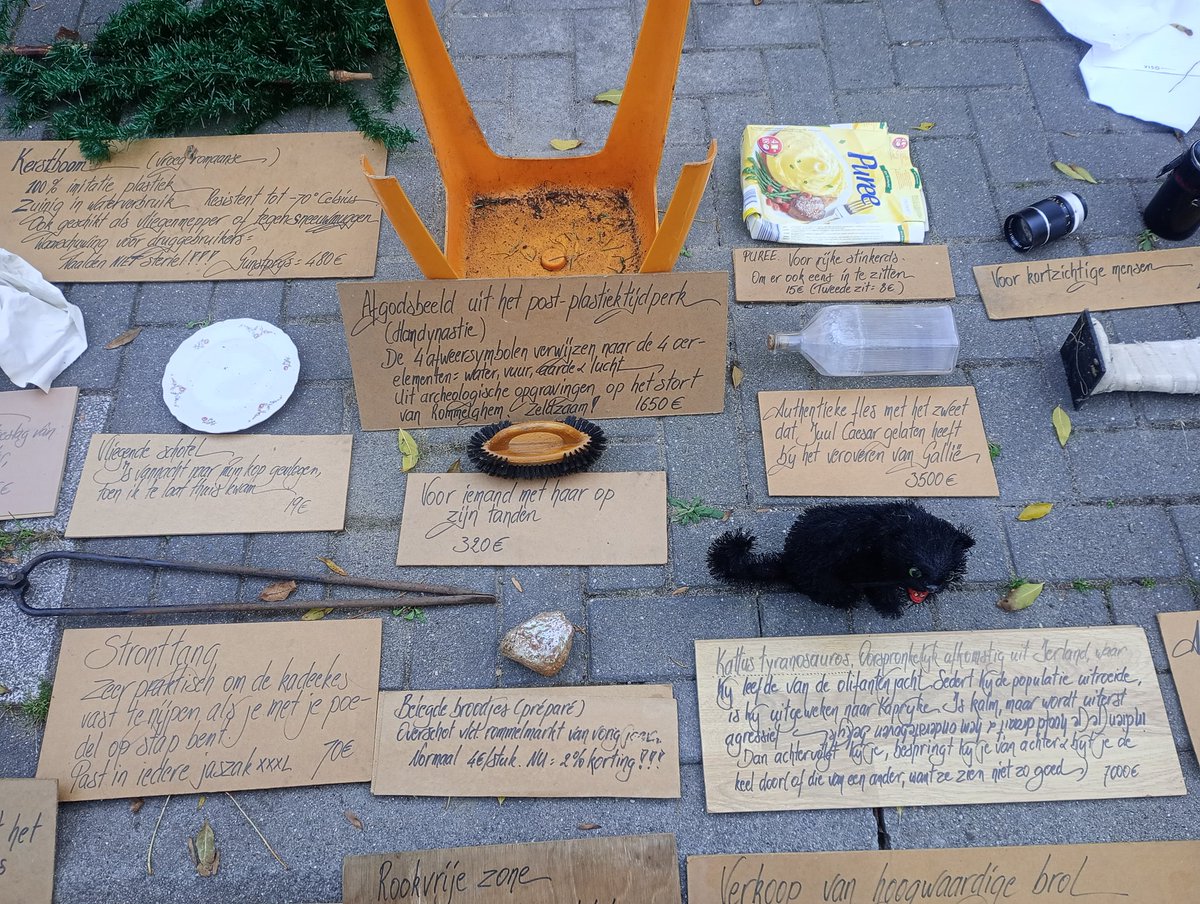 Kerstboom (vroeg romaanse)
100% imitatie plastiek
Zuinig in waterverbruik Resistent tot -70° Celsius
Ook geschikt als vliegenmepper of tegen sneeuwmuggen
Waarschuwing voor druggebruikers:
Naalden NIET steriel!!! Gunstprijs = 480€
Afgodsbeeld uit het post-plastiektijdperk
(dlandynastie)
De 4 afweersymbolen verwijzen naar de 4 oer-
elementen = water, vuur, aarde & lucht
Uit archeologische opgravingen op het stort
van Rommelghem. Zeldzaam! 1650€
Puree
PUREE. Voor rijke stinkerds.
Om er ook eens in te zitten
15€ (Tweede zit = 8€)
Voor kortzichtige mensen
Authentieke fles met het zweet
dat Juul Caesar gelaten heeft
bij het veroveren van Gallië
3500€
Vliegende schotel
Is vannacht naar mijn kop gevlogen,
toen ik te laat thuis kwam
19€
Voor iemand met haar op
zijn tanden
320€
Stronttang
Zeer praktisch om de kadeekes
vast te nijpen, als je met je poe-
del op stap bent
Past in iedere jaszak xxxL 70€
Belegde broodjes (préparé)
Overschot vld rommelmarkt van vorig jaar
Normaal 4€/stuk. NU = 2% korting!!!
Kattus tyranosauros. Oorspronkelijk afkomstig uit Ierland, waar
hij leefde van de olifantenjacht. Sedert hij de populatie uitroeide,
is hij uitgeweken naar Kaprijke. Is kalm, maar wordt uiterst
agressief
Dan achtervolgt hij je, bespringt hij je van achter & bijt je de
keel door (of die van een ander, want ze zien niet zo goed) 7000€
het
Rookvrije zone
Verkoop van hoogwaardige brol